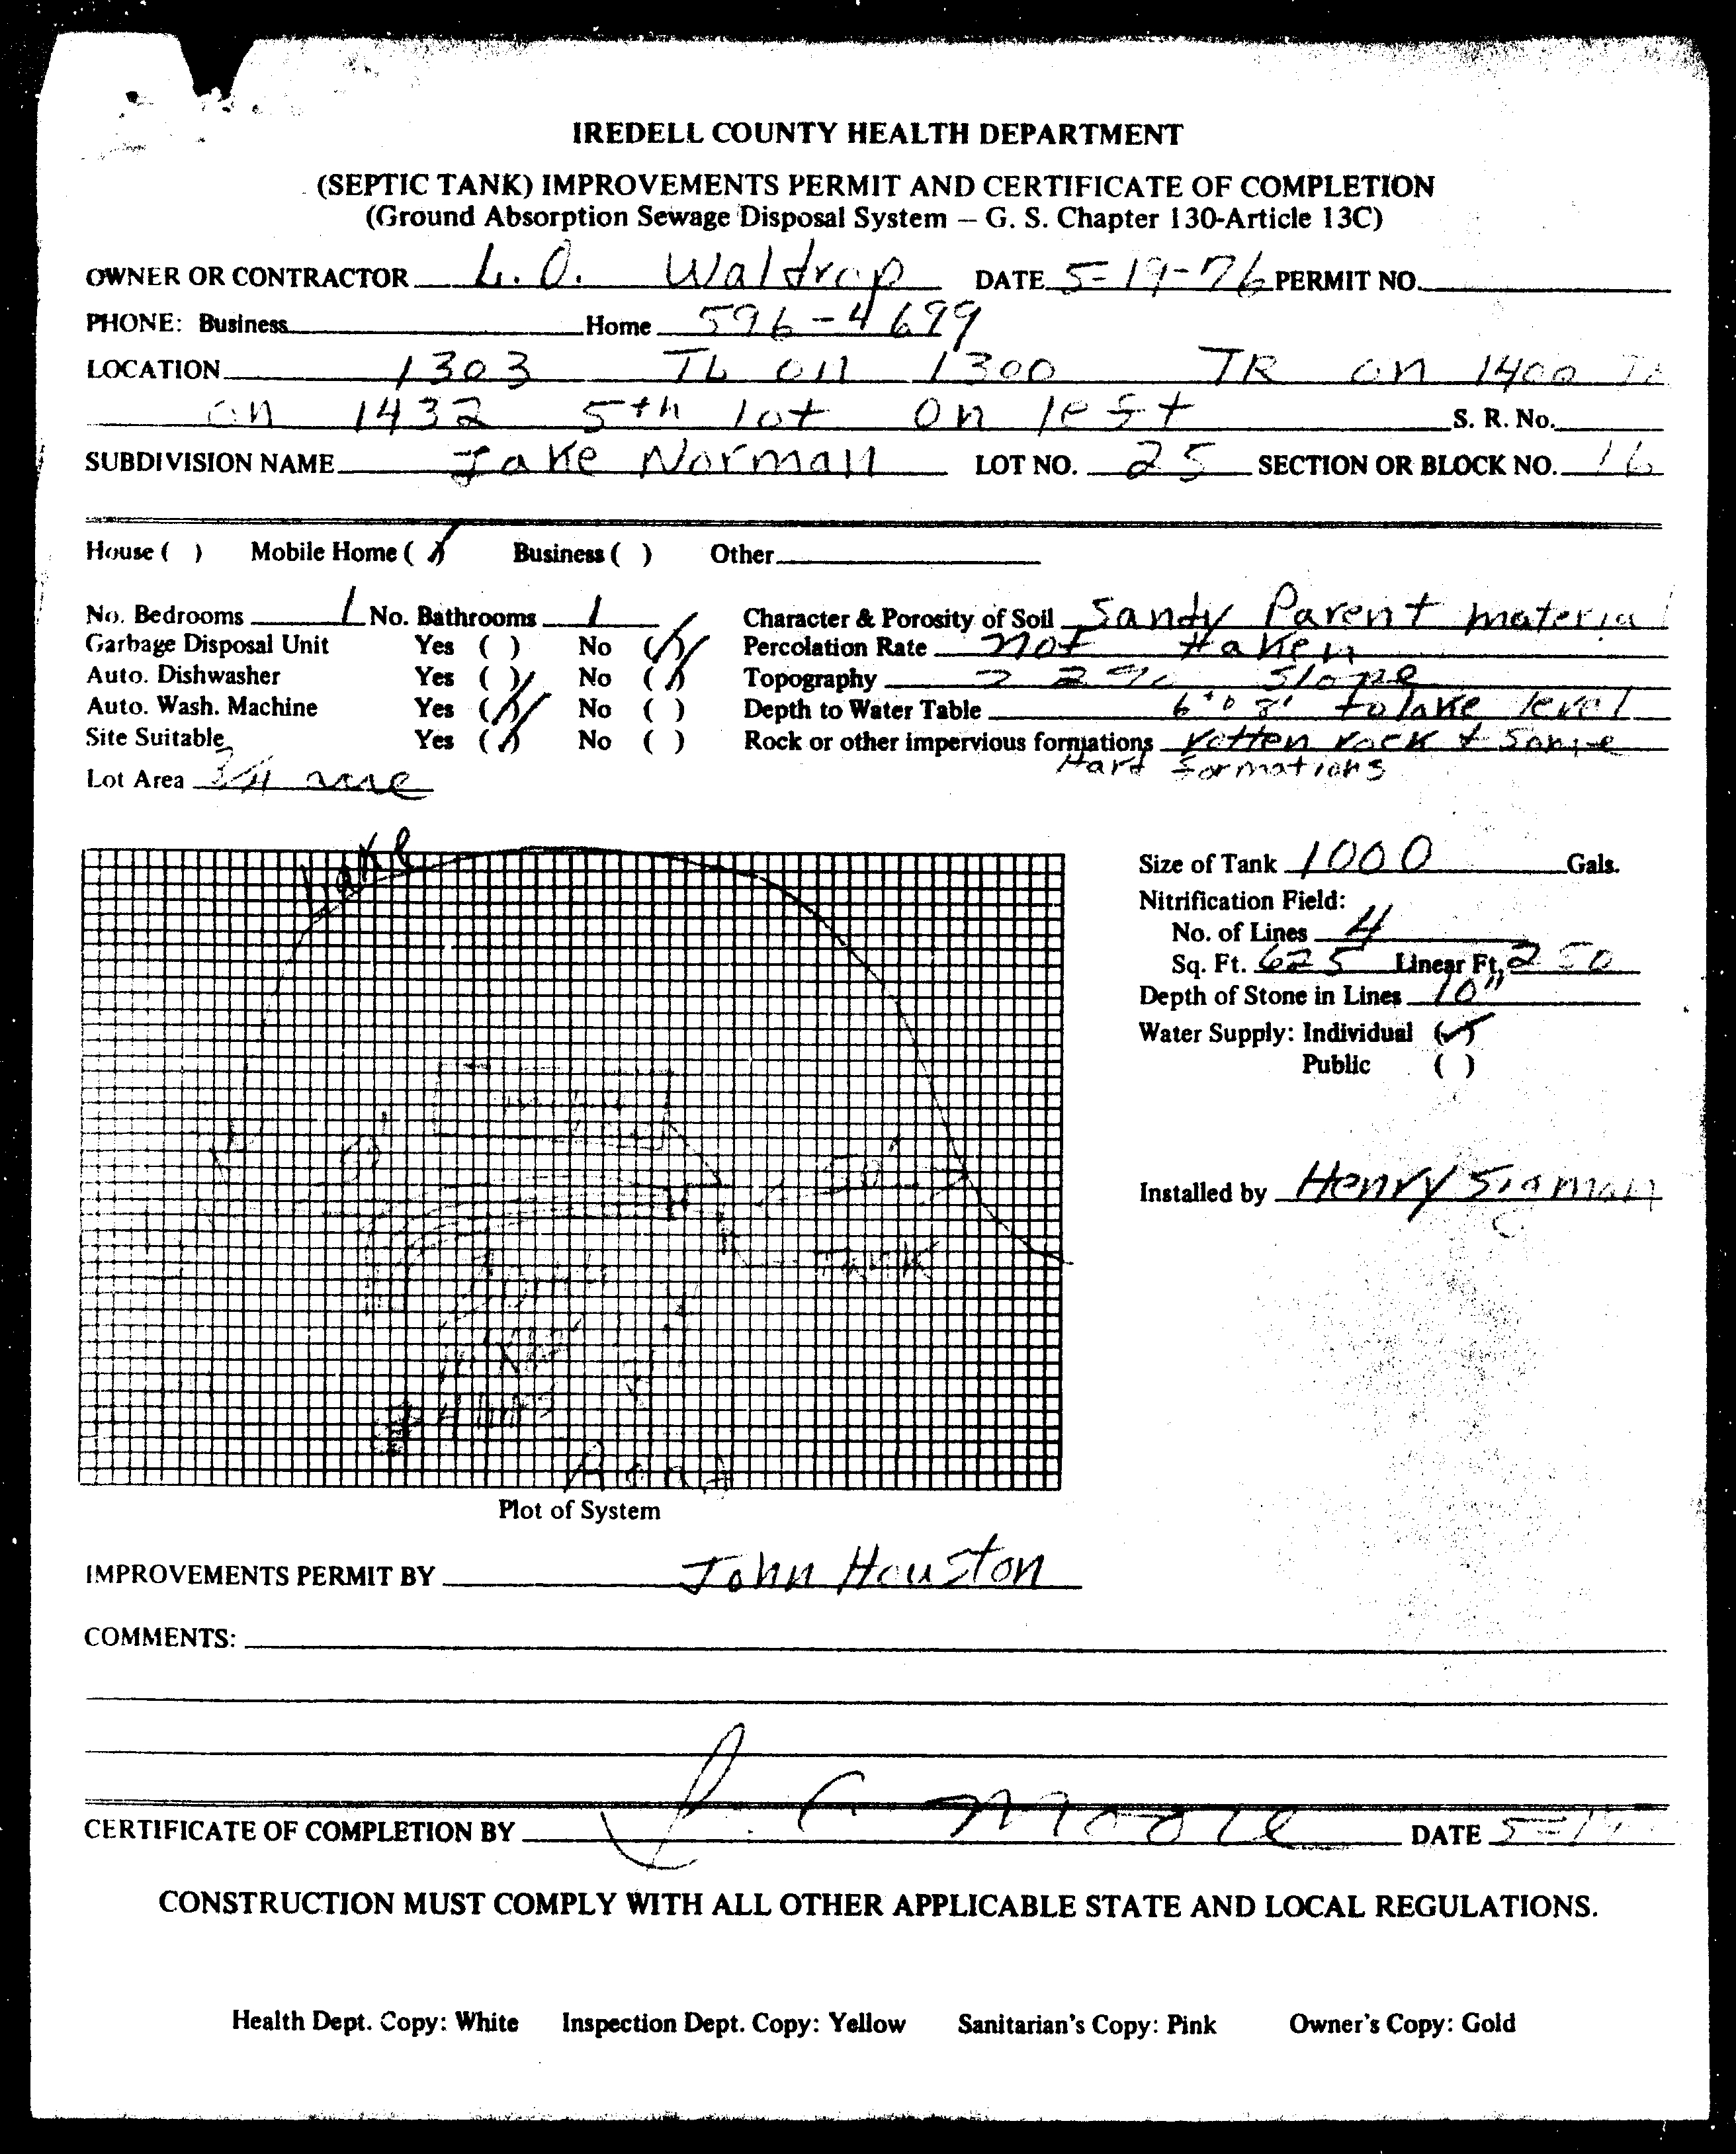 IREDELL COUNTY HEALTH DEPARTMENT
(SEPTIC TANK) IMPROVEMENTS PERMIT AND CERTIFICATE OF COMPLETION
(Ground Absorption Sewage Disposal System – G. S. Chapter 130-Article 13C)
OWNER OR CONTRACTOR L. O. Waldrop DATE 5-19-76 PERMIT NO.
PHONE: Business Home 596-4699
LOCATION 1303 TL on 1300 TR on 1400
on 1432 5th lot on left S. R. No.
SUBDIVISION NAME Lake Norman LOT NO. 25 SECTION OR BLOCK NO. 16
House ( ) Mobile Home (X) Business ( ) Other
No. Bedrooms 1 No. Bathrooms 1 Character & Porosity of Soil Sandy Parent material
Garbage Disposal Unit Yes ( ) No (X) Percolation Rate not taken
Auto. Dishwasher Yes ( ) No (X) Topography > 2% Slope
Auto. Wash. Machine Yes (X) No ( ) Depth to Water Table 6 to 8' to lake level
Site Suitable Yes (X) No ( ) Rock or other impervious formations rotten rock + some
Hard formations
Lot Area 3/4 acre
Lake
Size of Tank 1000 Gals.
Nitrification Field:
No. of Lines 4
Sq. Ft. 625 Linear Ft. 250
Depth of Stone in Lines 10"
Water Supply: Individual (✓)
Public ( )
50'
Installed by Henry Sigman
Tank
4 lines
Road
Plot of System
IMPROVEMENTS PERMIT BY John Houston
COMMENTS:
CERTIFICATE OF COMPLETION BY J. C. Moore DATE
CONSTRUCTION MUST COMPLY WITH ALL OTHER APPLICABLE STATE AND LOCAL REGULATIONS.
Health Dept. Copy: White Inspection Dept. Copy: Yellow Sanitarian's Copy: Pink Owner's Copy: Gold